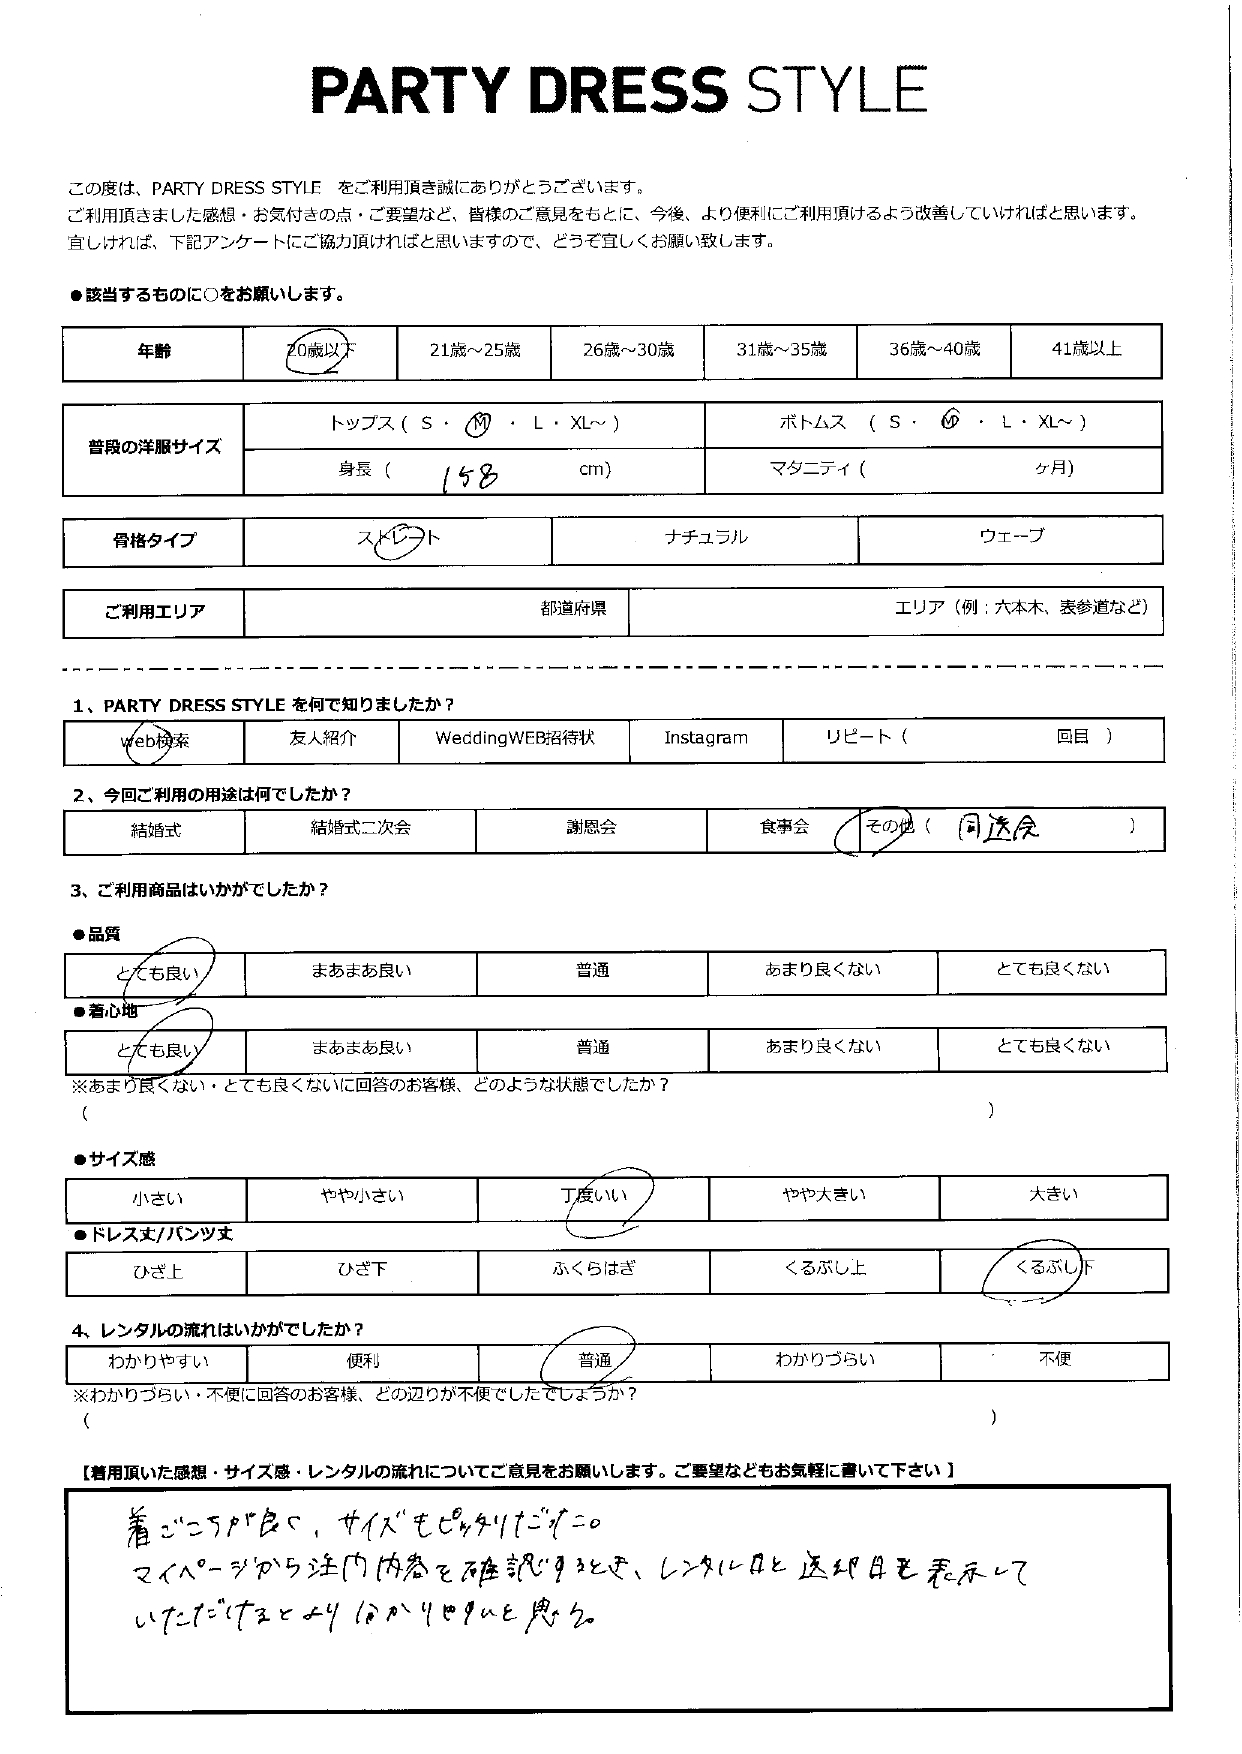 PARTY DRESS STYLE
この度は、PARTY DRESS STYLE をご利用頂き誠にありがとうございます。
ご利用頂きました感想・お気付きの点・ご要望など、皆様のご意見をもとに、今後、より便利にご利用頂けるよう改善していければと思います。
宜しければ、下記アンケートにご協力頂ければと思いますので、どうぞ宜しくお願い致します。
●該当するものに○をお願いします。
年齢 20歳以下 21歳～25歳 26歳～30歳 31歳～35歳 36歳～40歳 41歳以上
普段の洋服サイズ トップス ( S ・ M ・ L ・ XL～ ) ボトムス ( S ・ M ・ L ・ XL～ )
身長 ( 158 cm) マタニティ ( ヶ月)
骨格タイプ ストレート ナチュラル ウェーブ
ご利用エリア 都道府県 エリア（例：六本木、表参道など）
1、PARTY DRESS STYLE を何で知りましたか？
web検索 友人紹介 WeddingWEB招待状 Instagram リピート（ 回目 ）
2、今回ご利用の用途は何でしたか？
結婚式 結婚式二次会 謝恩会 食事会 その他（ 同送会 ）
3、ご利用商品はいかがでしたか？
●品質
とても良い まあまあ良い 普通 あまり良くない とても良くない
●着心地
とても良い まあまあ良い 普通 あまり良くない とても良くない
※あまり良くない・とても良くないに回答のお客様、どのような状態でしたか？
（ ）
●サイズ感
小さい やや小さい 丁度いい やや大きい 大きい
●ドレス丈/パンツ丈
ひざ上 ひざ下 ふくらはぎ くるぶし上 くるぶし下
4、レンタルの流れはいかがでしたか？
わかりやすい 便利 普通 わかりづらい 不便
※わかりづらい・不便に回答のお客様、どの辺りが不便でしたでしょうか？
（ ）
【着用頂いた感想・サイズ感・レンタルの流れについてご意見をお願いします。ご要望などもお気軽に書いて下さい 】
着ごこちが良く、サイズもピッタリだった。
マイページから注内内容を確認するとき、レンタル日と送却日も表示して
いただけるとより分かりやすいと思う。